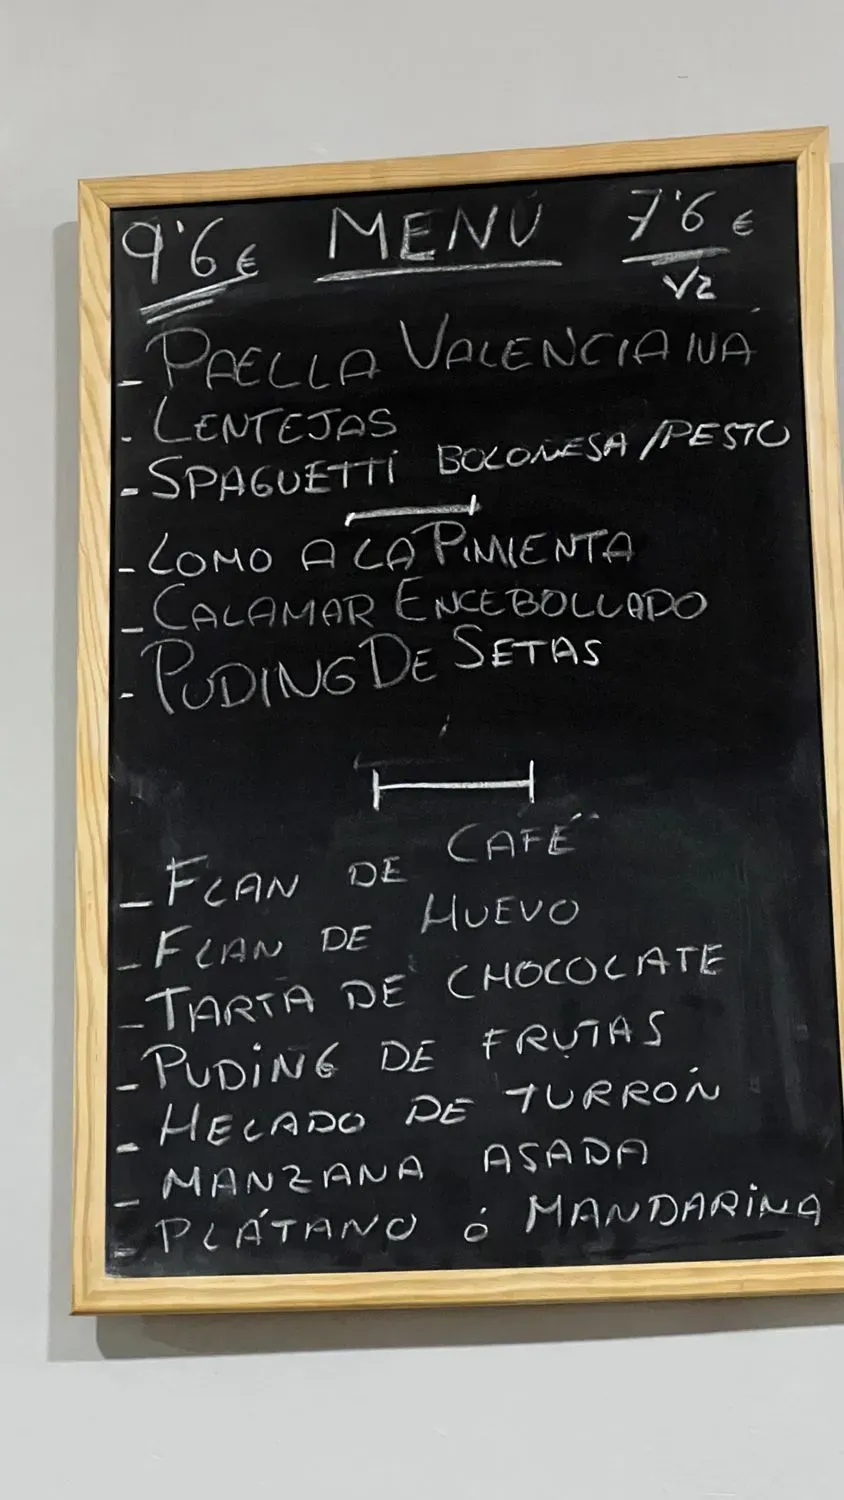 9'6€ MENÚ 7'6€
1/2
- PAELLA VALENCIANA
- LENTEJAS
- SPAGUETTI BOLOÑESA / PESTO
- LOMO A LA PIMIENTA
- CALAMAR ENCEBOLLADO
- PUDING DE SETAS
- FLAN DE CAFÉ
- FLAN DE HUEVO
- TARTA DE CHOCOLATE
- PUDING DE FRUTAS
- HELADO DE TURRÓN
- MANZANA ASADA
- PLÁTANO ó MANDARINA